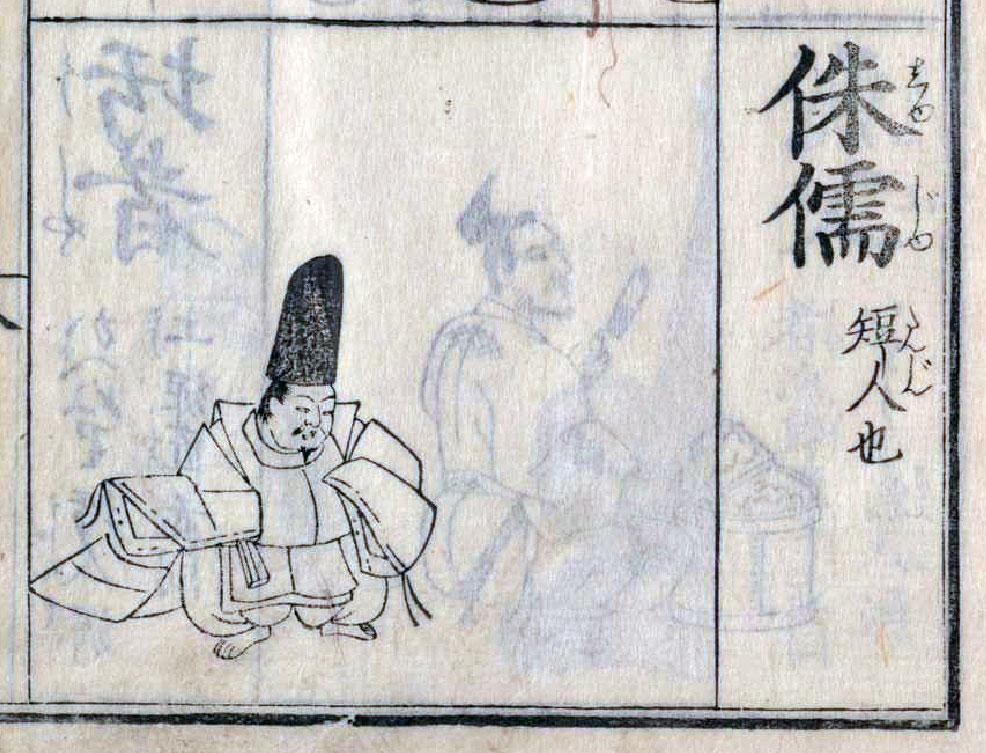 侏儒
しゆじゆ
短人也
たんじん